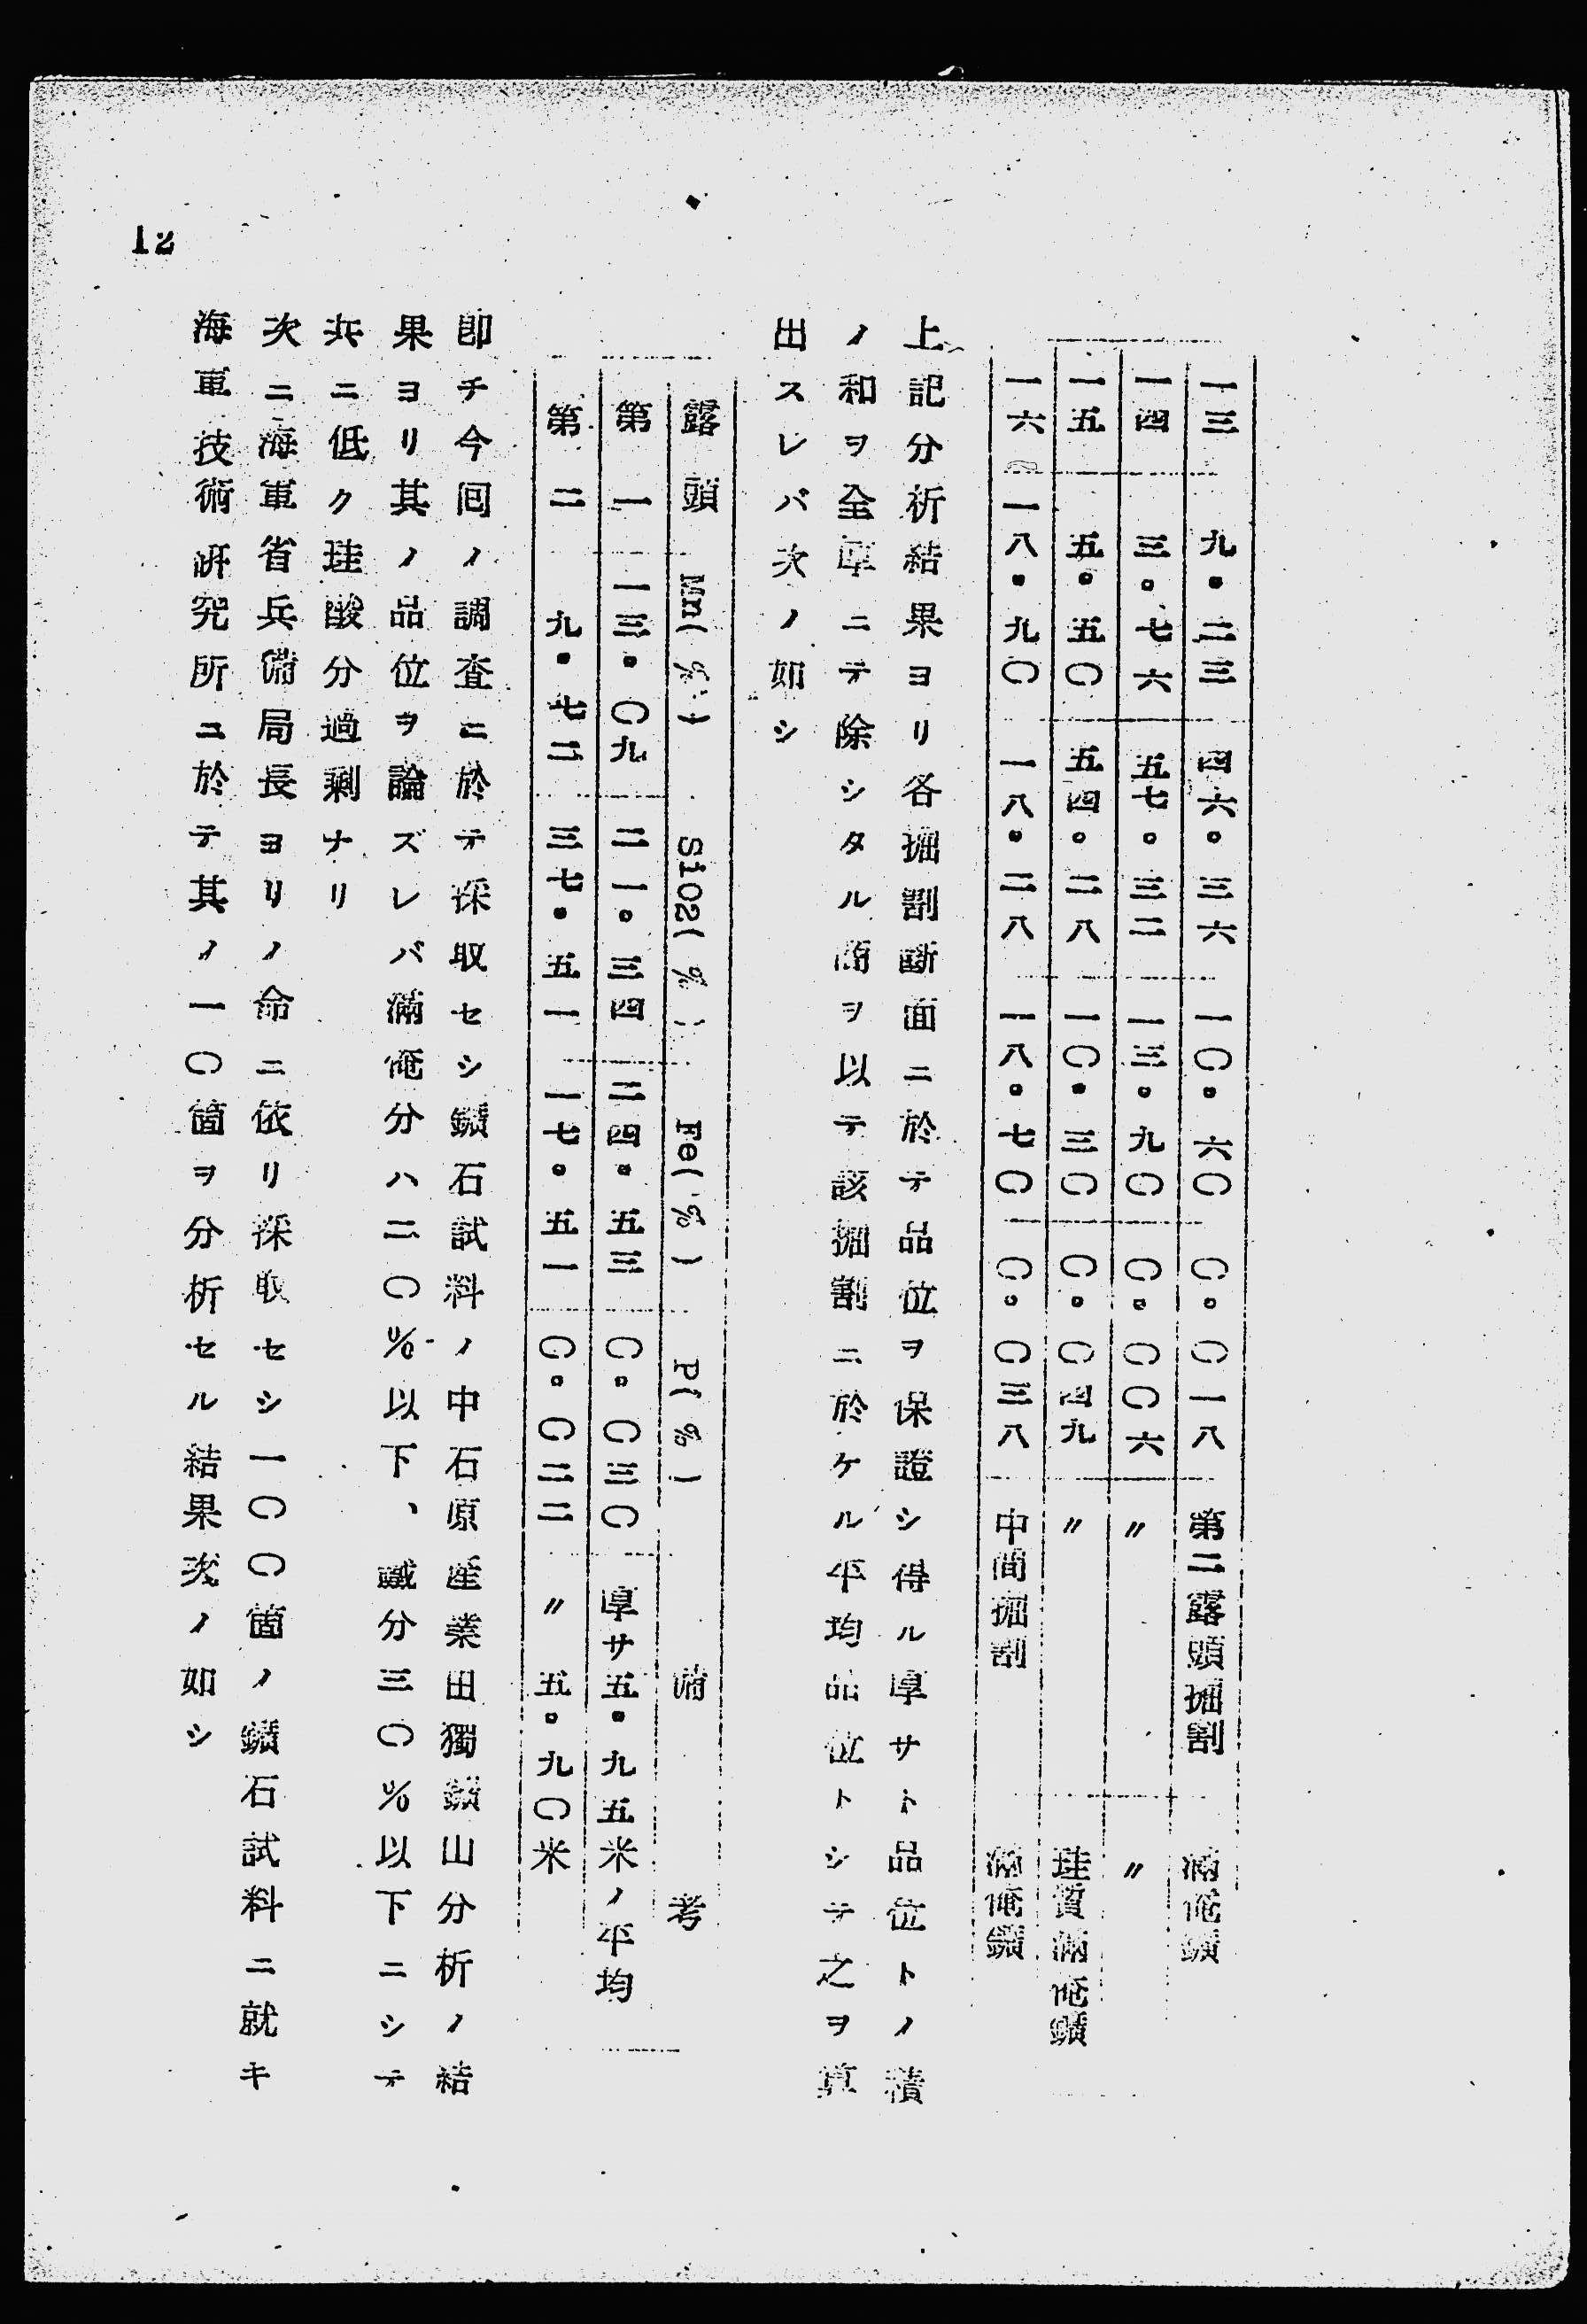 12
一三 九・二三 四六・三六 一〇・六〇 〇・〇一八 第二露頭掘割 滿俺鑛
一四 三・七六 五七・三二 一三・九〇 〇・〇〇六 〃 〃
一五 五・五〇 五四・二八 一〇・三〇 〇・〇四九 〃 珪質滿俺鑛
一六 一八・九〇 一八・二八 一八・七〇 〇・〇三八 中間掘割 滿俺鑛
上記分析結果ヨリ各掘割斷面ニ於テ品位ヲ保證シ得ル厚サト品位トノ積
ノ和ヲ全厚ニテ除シタル商ヲ以テ該掘割ニ於ケル平均品位トシテ之ヲ算
出スレバ次ノ如シ
露頭 Mn(%) SiO2(%) Fe(%) P(%) 備考
第一 一三・〇九 二一・三四 二四・五三 〇・〇三〇 厚サ五・九五米ノ平均
第二 九・七二 三七・五一 一七・五一 〇・〇二二 〃 五・九〇米
卽チ今囘ノ調査ニ於テ採取セシ鑛石試料ノ中石原産業田獨鑛山分析ノ結
果ヨリ其ノ品位ヲ論ズレバ滿俺分ハ二〇%以下、鐵分三〇%以下ニシテ
共ニ低ク珪酸分過剩ナリ
次ニ海軍省兵備局長ヨリノ命ニ依リ採取セシ一〇〇箇ノ鑛石試料ニ就キ
海軍技術硏究所ニ於テ其ノ一〇箇ヲ分析セル結果次ノ如シ